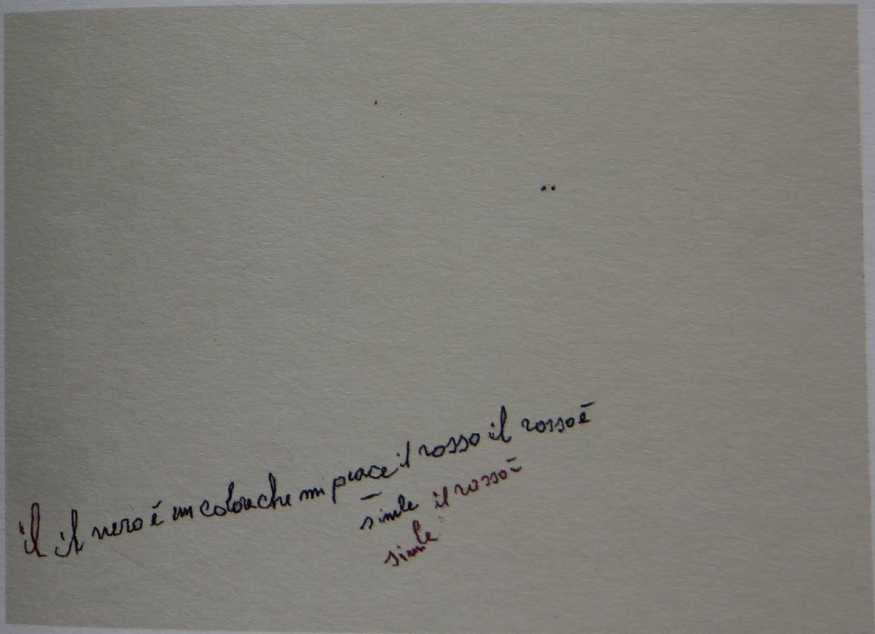 il il nero é un colore che mi piace il rosso il rosso é
simle il rosso é
simle